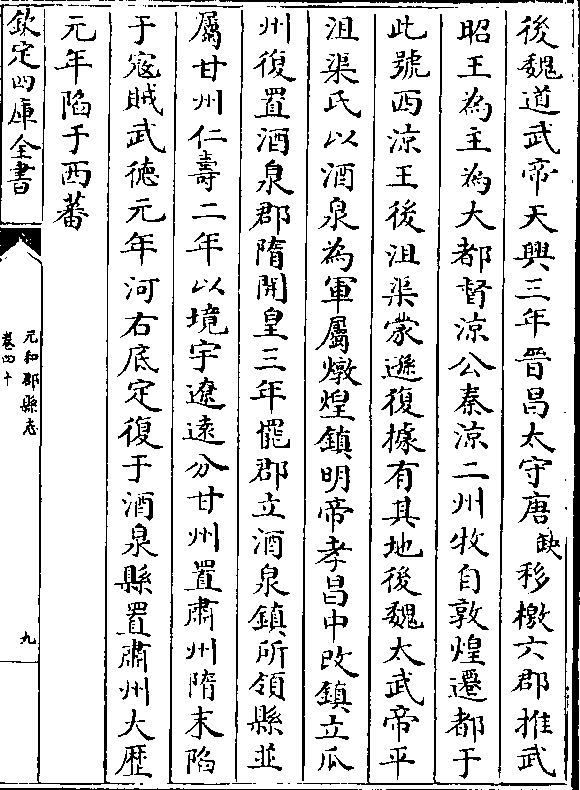 後魏道武帝天興三年晉昌太守唐缺移檄六郡推武
昭王為主為大都督涼公秦涼二州牧自敦煌遷都于
此號西涼王後沮渠蒙遜復據有其地後魏太武帝平
沮渠氏以酒泉為軍屬燉煌鎮明帝孝昌中改鎮立瓜
州復置酒泉郡隋開皇三年罷郡立酒泉鎮所領縣並
屬甘州仁壽二年以境宇遼遠分甘州置肅州隋末陷
于寇賊武德元年河右底定復于酒泉縣置肅州大歴
元年陷于西蕃
欽定四庫全書
元和郡縣志
卷四十
九